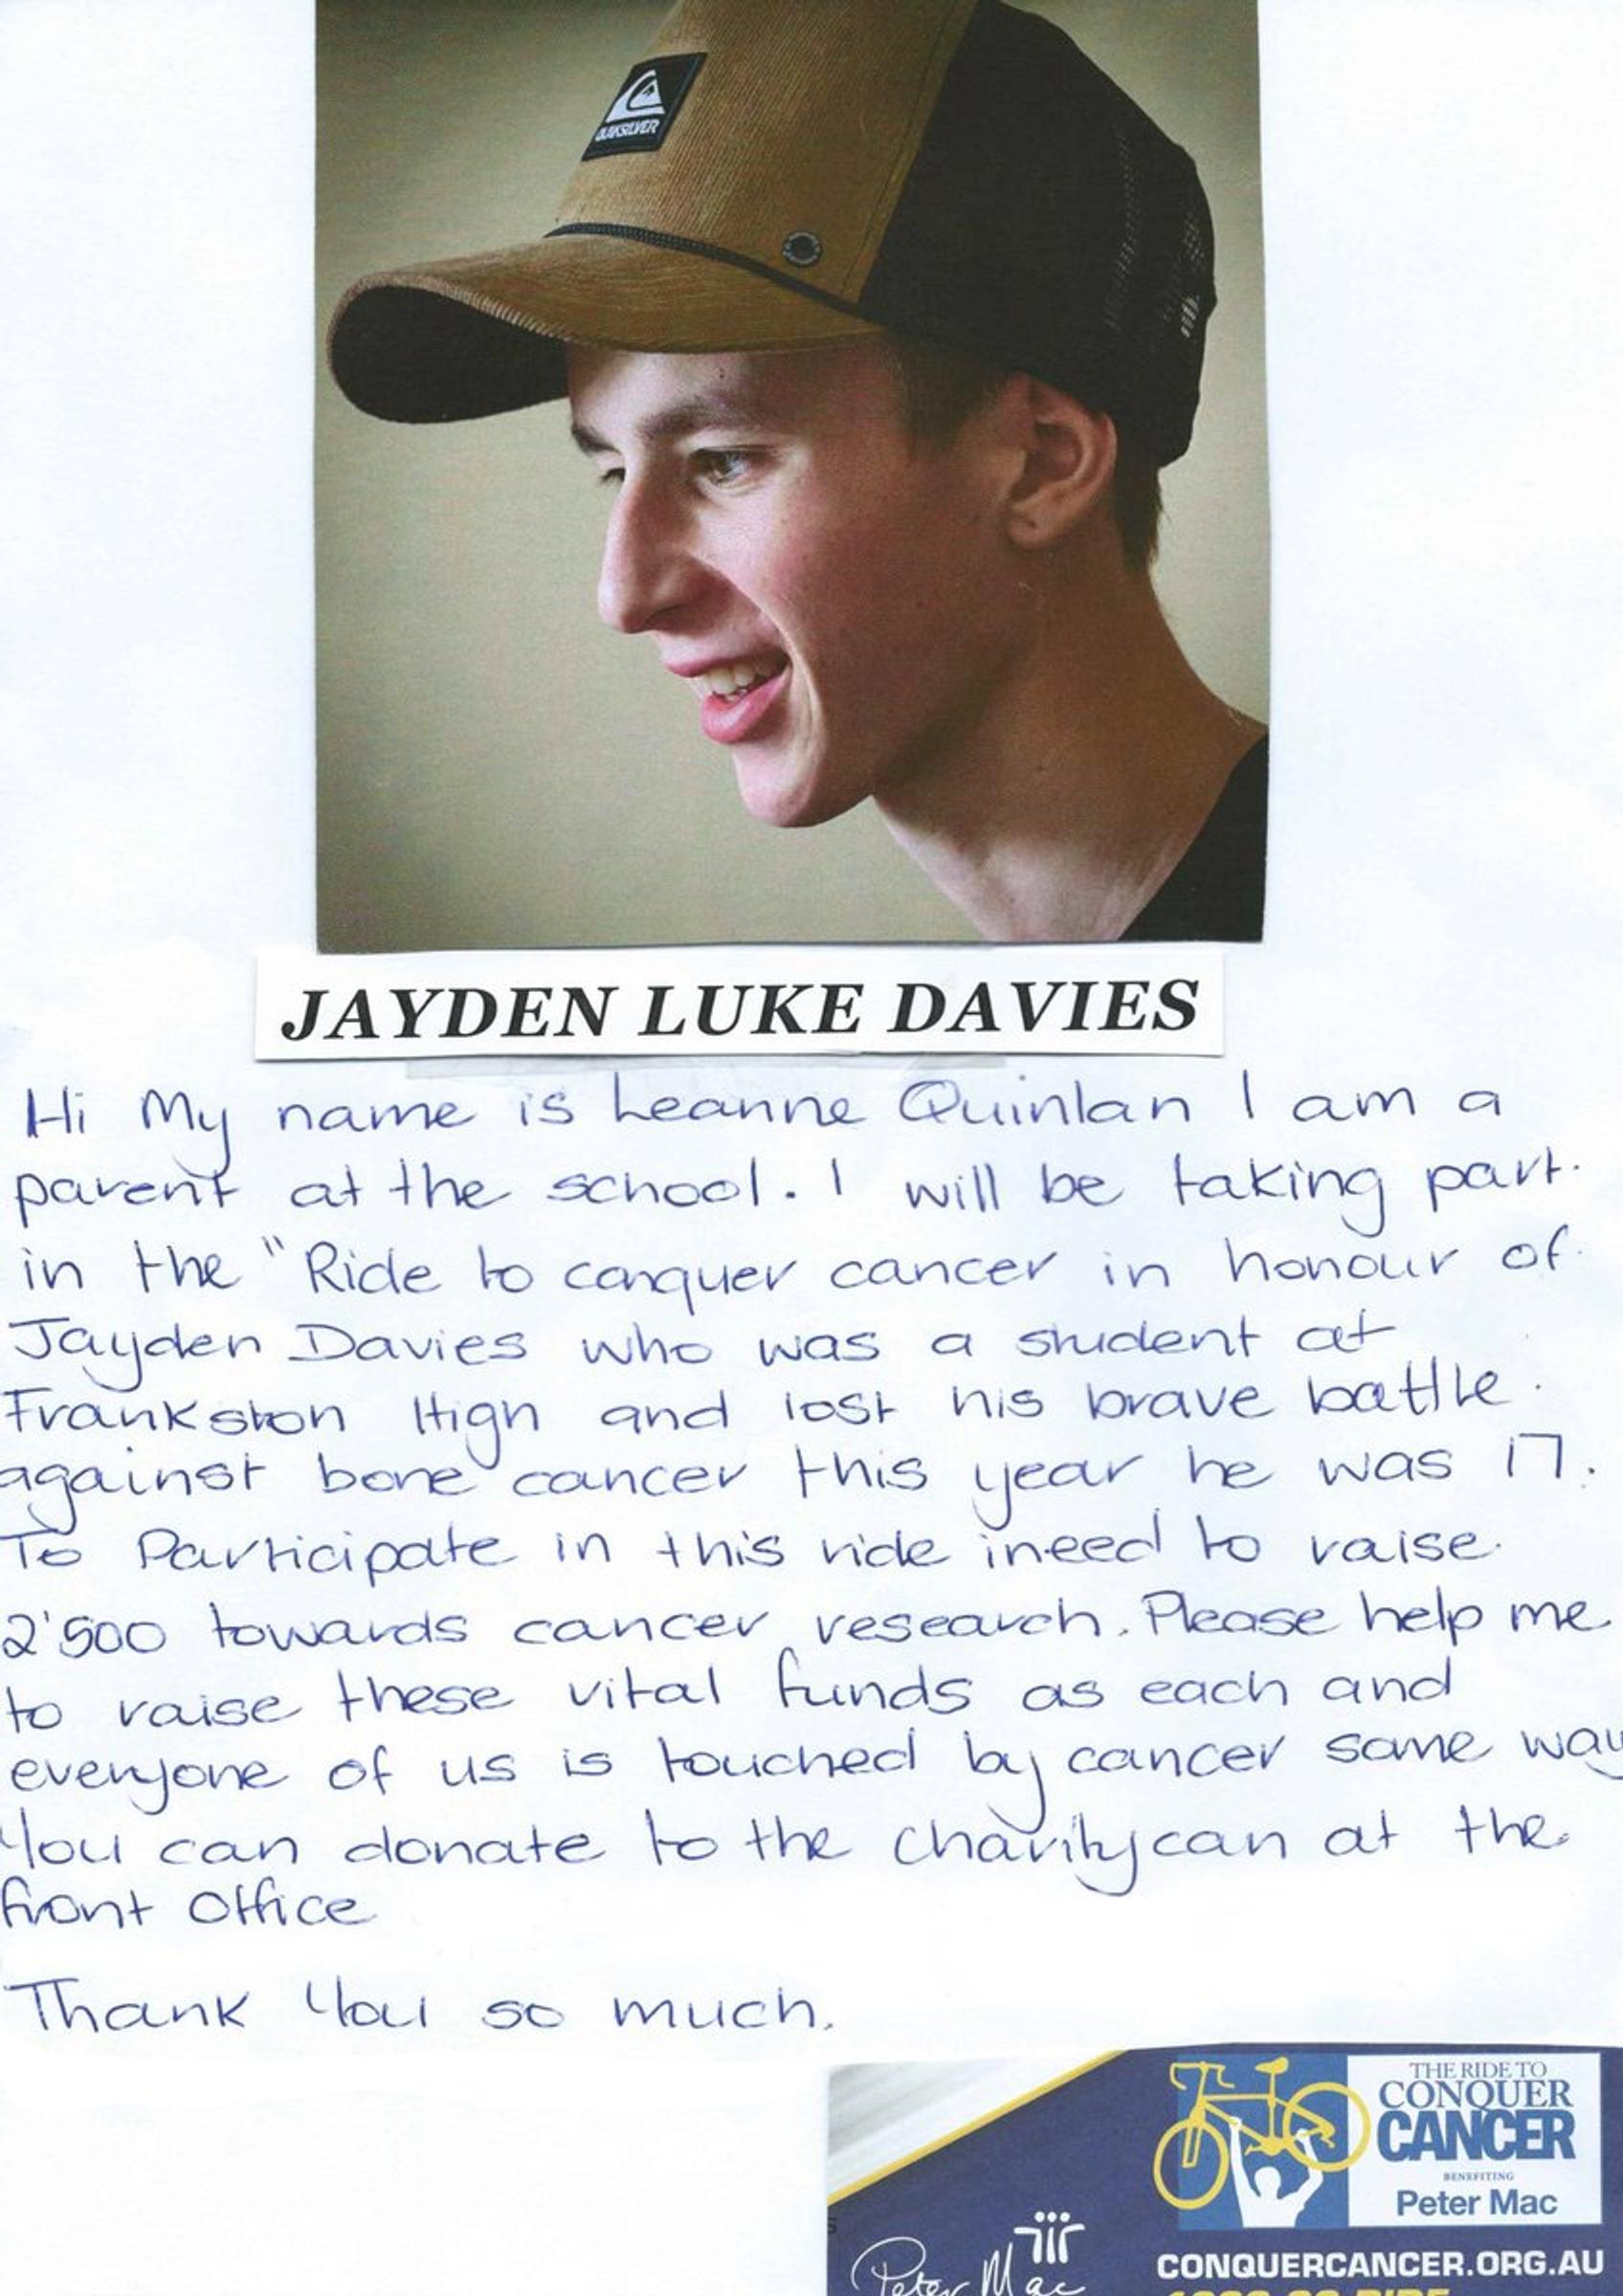 QUIKSILVER
JAYDEN LUKE DAVIES
Hi My name is Leanne Quinlan I am a
parent at the school. I will be taking part
in the "Ride to conquer cancer in honour of
Jayden Davies who was a student at
Frankston High and lost his brave battle
against bone cancer this year he was 17.
To Participate in this ride ineed to raise
2'500 towards cancer research. Please help me
to raise these vital funds as each and
everyone of us is touched by cancer some way
You can donate to the charity can at the
front Office
Thank You so much.
THE RIDE TO
CONQUER
CANCER
BENEFITING
Peter Mac
Peter Mac
CONQUERCANCER.ORG.AU